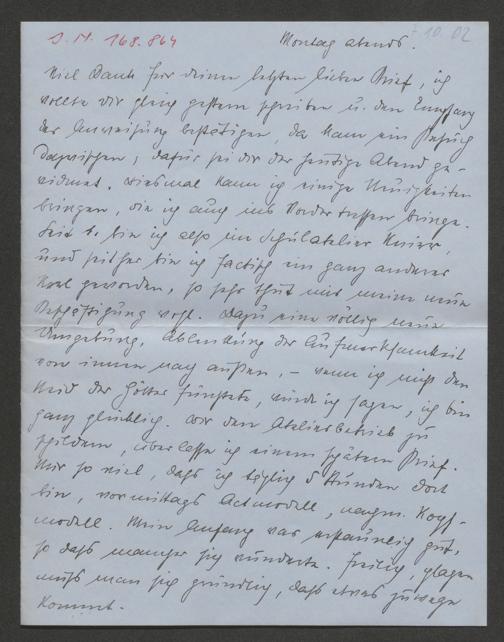 J.N. 168.864
7.10.02
Montag abends.
Viel Dank für deinen letzten lieben Brief, ich
wollte dir gleich gestern schreiben u. den Empfang
der Anweisung bestätigen, da kam ein Besuch
dazwischen; dafür sei dir der heutige Abend ge-
widmet. Diesmal kann ich einige Neuigkeiten
bringen, die ich auch ins Vordertreffen bringe.
Seit 1. bin ich also im Schulatelier
und seither bin ich factisch ein ganz anderer
Kerl geworden, so sehr thut mir meine neue
Beschäftigung wohl. Dazu eine völlig neue
Umgebung, Ablenkung der Aufmerksamkeit
von innen nach außen, – wenn ich nicht den
Neid der Götter fürchtete, würde ich sagen, ich bin
ganz glücklich. Dir den Atelierbetrieb zu
schildern, überlasse ich einem spätern Brief.
Nur so viel, daß ich täglich 5 Stunden dort
bin, vormittags Actmodell, nachm. Kopf-
modell. Mein Anfang war erstaunlich gut,
so daß mancher sich wunderte. Freilich, plagen
muß man sich gründlich, daß etwas zuwege
kommt.